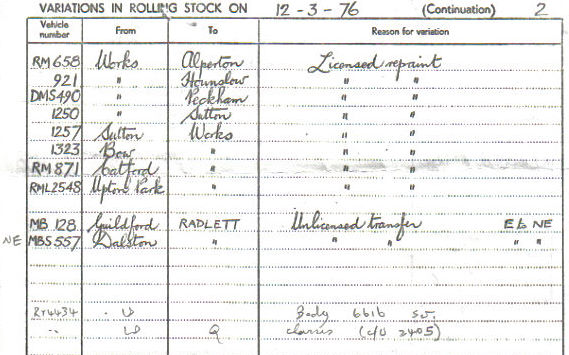 VARIATIONS IN ROLLING STOCK ON 12-3-76 (Continuation) 2
Vehicle number From To Reason for variation
RM 658 Works Alperton Licensed repaint
921 " Hounslow " "
DMS 490 " Peckham " "
1250 " Sutton " "
1257 Sutton Works " "
1323 Bow " " "
RM 871 Catford " " "
RML 2548 Upton Park " " "
MB 128 Guildford RADLETT Unlicensed transfer E to NE
NE MBS 557 Dalston " " " " "
RT4434 U Body 6616
" U Q chassis (c/u 2405)